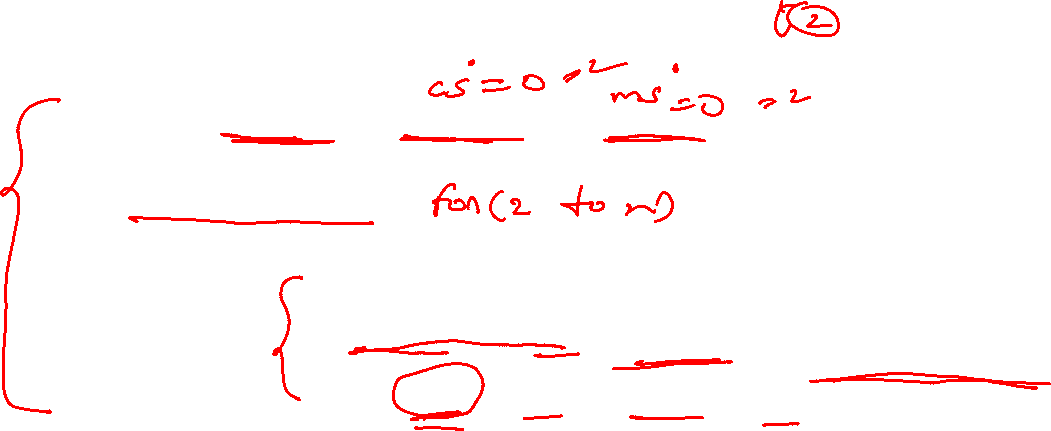 2
cs=0 =2 ms=0 =2
for(2 to n)